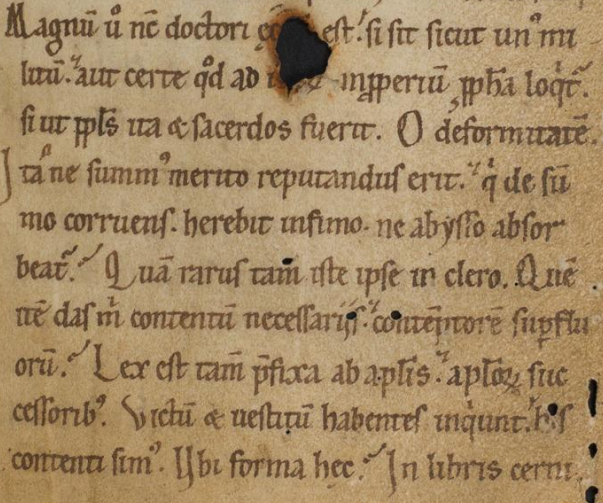 Magnū ů nc̄ doctori est. si sit sicut un᾽ mi
litū. aut certe qd̄ ad inp̱periū, ꝓph̄a loqt̄.
si ut ppl̄s ita & sacerdos fuerit. O deformitatē.
Ita ne summ᾽ merito reputandus erit. q̇ de sū
mo corruens. herebit infimo. ne abysso absor
beat᷑. Quā rarus tam̄ iste ipse in clero. Quē
nē das m̄ contentū necessariis. contēptorē suꝑflu
orū. Lex est tam̄ p̄fixa ab apl̄is. apl̄oꝝ suc
cessorib᾽. Victū & vestitū habentes inqunt. his
contenti sim᾽. Ubi forma hec. In libris cerni